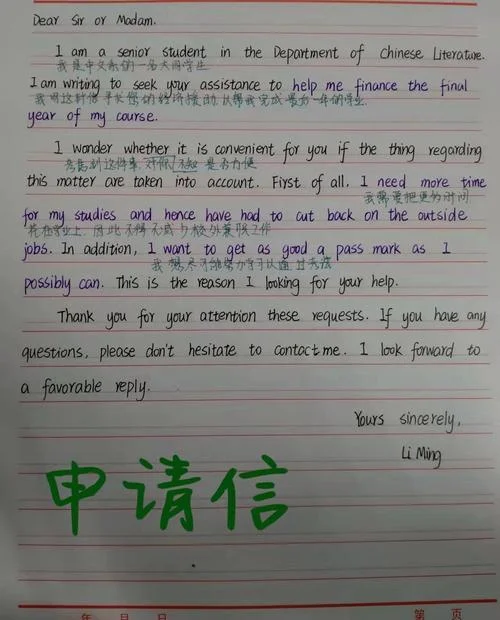 Dear Sir or Madam.
I am a senior student in the Department of Chinese Literature.
我是中文系的一名大四学生
I am writing to seek your assistance to help me finance the final
我用这封信寻求您的经济援助,以帮我完成最后一年的学业.
year of my course.
I wonder whether it is convenient for you if the thing regarding
考虑到这件事,对你 不知 是否方便
this matter are taken into account. First of all, I need more time
我需要把更多时间
for my studies and hence have had to cut back on the outside
花在学业上,因此不得不减少校外兼职工作
jobs. In addition, I want to get as good a pass mark as I
我想尽可能努力学习以通过考试
possibly can. This is the reason I looking for your help.
Thank you for your attention these requests. If you have any
questions, please don't hesitate to contact me. I look forward to
a favorable reply.
Yours sincerely,
Li Ming
申请信
年 月 日 第 页